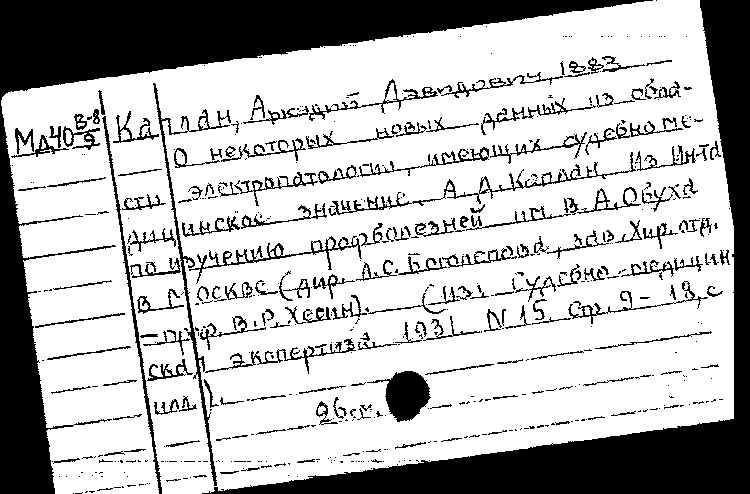 Мд40 В-8/9
Каплан, Аркадий Давидович, 1883
О некоторых новых данных из обла-
сти электропатологии, имеющих судебно ме-
дицинское значение. А. Д. Каплан. Из Ин-та
по изучению профболезней им. В. А. Обуха
в Москве (дир. Л. С. Боголепова, зав. Хир. отд.
- проф. В. Р. Хесин). (Из: Судебно-медицин-
ская экспертиза. 1931. N 15. стр. 9 - 18, с
илл.).
26 см.